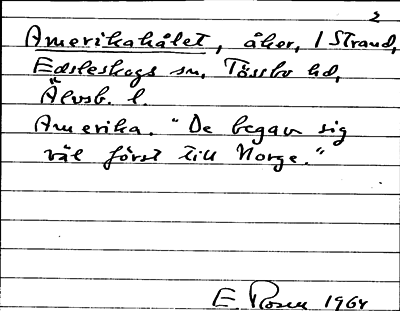 2
Amerikahålet, åker, 1 Strand,
Edsleskogs sn, Tössbo hd,
Älvsb. l.
Amerika. "De begav sig
väl först till Norge."
E Rosen 1964